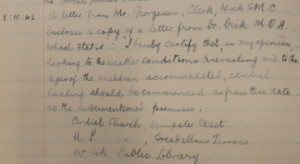 8.10.42
A letter from Mr. Georgeson, Clerk, Wick S.M.C
encloses a copy of a letter from Dr. Dick M.O.H.
which states: I hereby certify that, in my opinion,
looking to the weather conditions prevailing and to the
ages of the children accommodated, central
heating should be commenced as from this date
at the undermentioned premises:-
Central Church, Dempster Street
U. F. " , Breadalbane Terrace
Wick Public Library